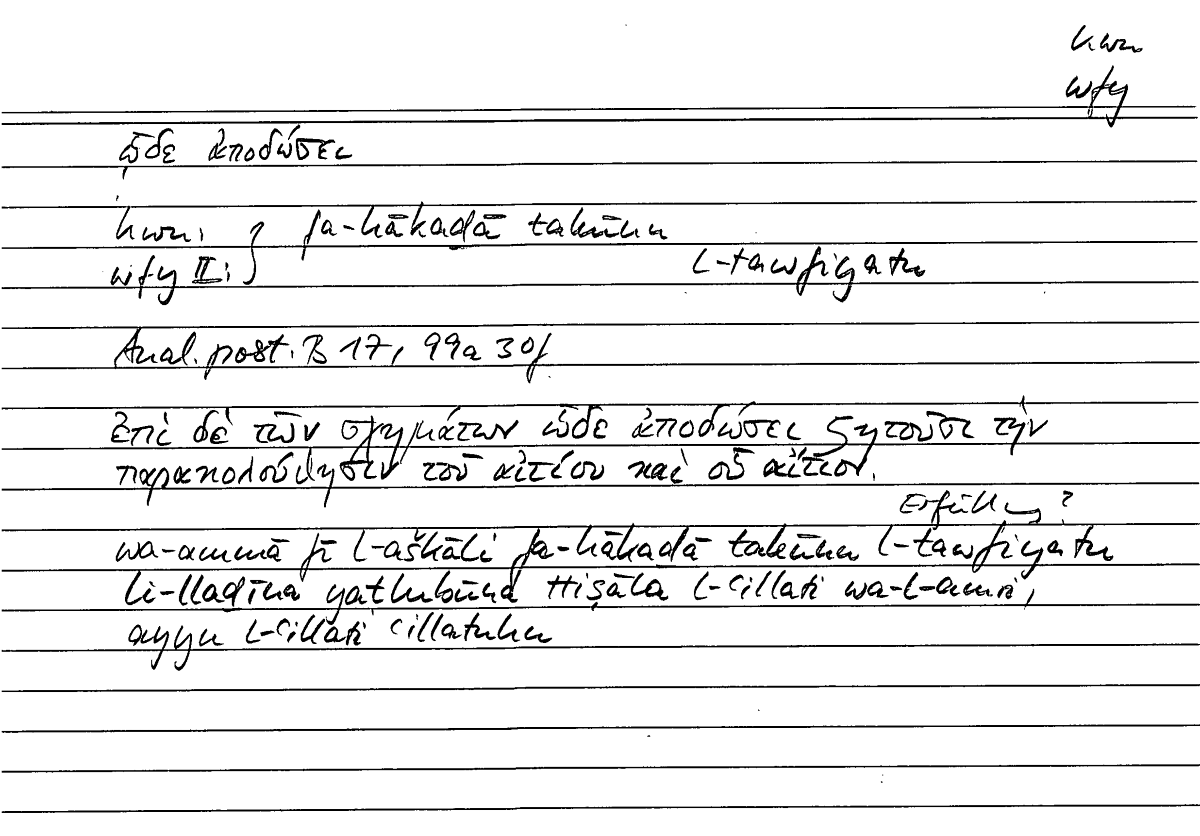 kwn
wfy
ὧδε ἀποδώσει
kwn: } fa-hākaḏā takūnu
wfy II: l-tawfiyatu
Anal. post. B 17, 99a 30f
Ἐπὶ δὲ τῶν σχημάτων ὧδε ἀποδώσει ζητοῦσι τὴν
παρακολούθησιν τοῦ αἰτίου καὶ οὗ αἴτιον.
Erfüllung?
wa-ammā fī l-aškāli fa-hākaḏā takūnu l-tawfiyatu
li-llaḏīna yaṭlubūna ttiṣāla l-ʿillati wa-l-amri,
ayyu l-ʿillati ʿillatuhu